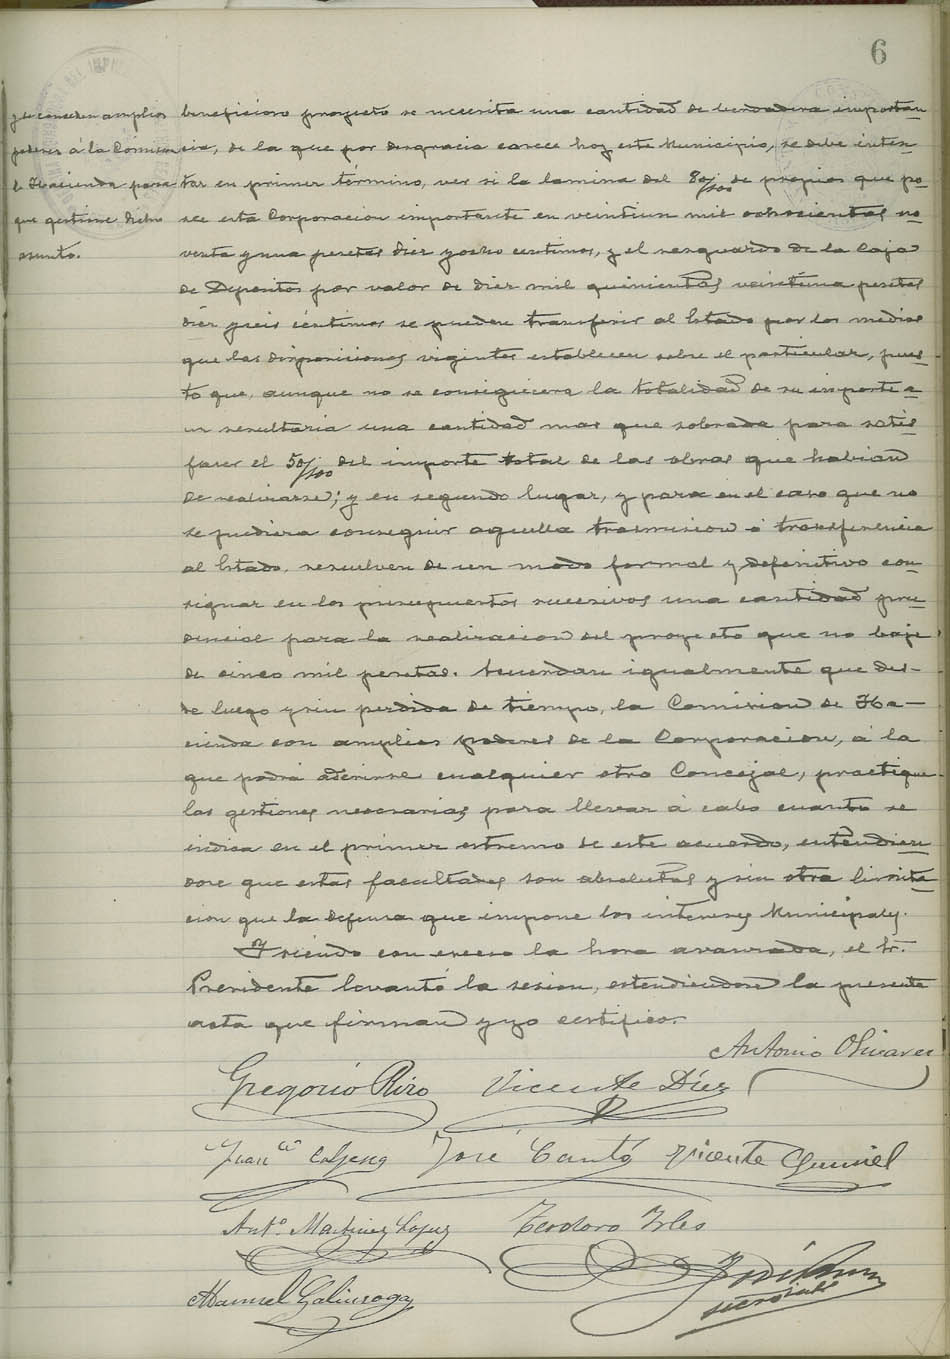 6
y se conceden amplios
poderes á la Comision
de Hacienda para
que gestione dicho
asunto.
beneficioso proyecto se necesita una cantidad de verdadera importan
cia, de la que por desgracia carece hoy este Municipio, se debe inten
tar en primer término, ver si la lamina del 80/100 de propios que po
see esta Corporacion importante en veintiun mil ochocientas no
venta y una pesetas diez y ocho centimos, y el resguardo de la Caja
de Depositos por valor de diez mil quinientas veintiuna pesetas
diez y seis céntimos se pueden transferir al Estado por los medios
que las disposiciones vigentes establecen sobre el particular, pues
to que, aunque no se consiguiera la totalidad de su importe a
un resultaria una cantidad mas que sobrada para satis
facer el 50/100 del importe total de las obras que habian
de realizarse; y en segundo lugar, y para en el caso que no
se pudiera conseguir aquella trasmision ó transferencia
al Estado, resuelven de un modo formal y definitivo con
signar en los presupuestos sucesivos una cantidad pru
dencial para la realizacion del proyecto que no baje
de cinco mil pesetas. Acuerdan igualmente que des-
de luego y sin perdida de tiempo, la Comision de Ha-
cienda con amplios poderes de la Corporacion, á la
que podrá aderirse cualquier otro Concejal, practique
las gestiones necesarias para llevar á cabo cuanto se
indica en el primer estremo de este acuerdo, entendien
dose que estas facultades son absolutas y sin otra limita
cion que la defensa que impone los intereses Municipales.
Y siendo con exceso la hora avanzada, el Sr.
Presidente levantó la sesion, estendiendose la presente
acta que firman y yo certifico.
Antonio Olivares
Gregorio Rizo Vicente Díez
Juan José Cantó Vicente
Ant.º Martinez Lopez Teodoro Irles
Manuel Galinsoga José
secretario